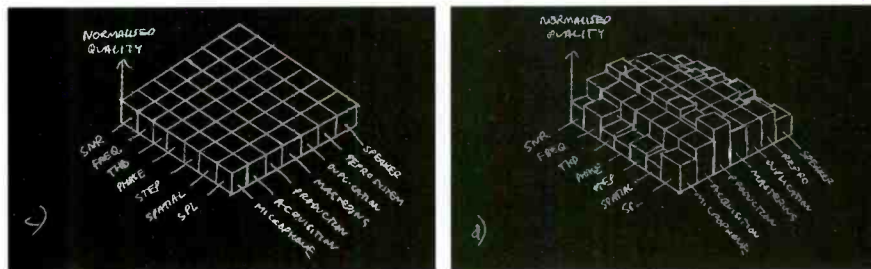 NORMALISED
QUALITY
SNR
FREQ
THD
PHASE
STEP
SPATIAL
SPL
MICROPHONE
ACQUISITION
PRODUCTION
MASTERING
DUPLICATION
REPRO SYSTEM
SPEAKER
c)
NORMALISED
QUALITY
SNR
FREQ
THD
PHASE
STEP
SPATIAL
SPL
MICROPHONE
ACQUISITION
PRODUCTION
MASTERING
DUPLICATION
REPRO
SPEAKER
d)